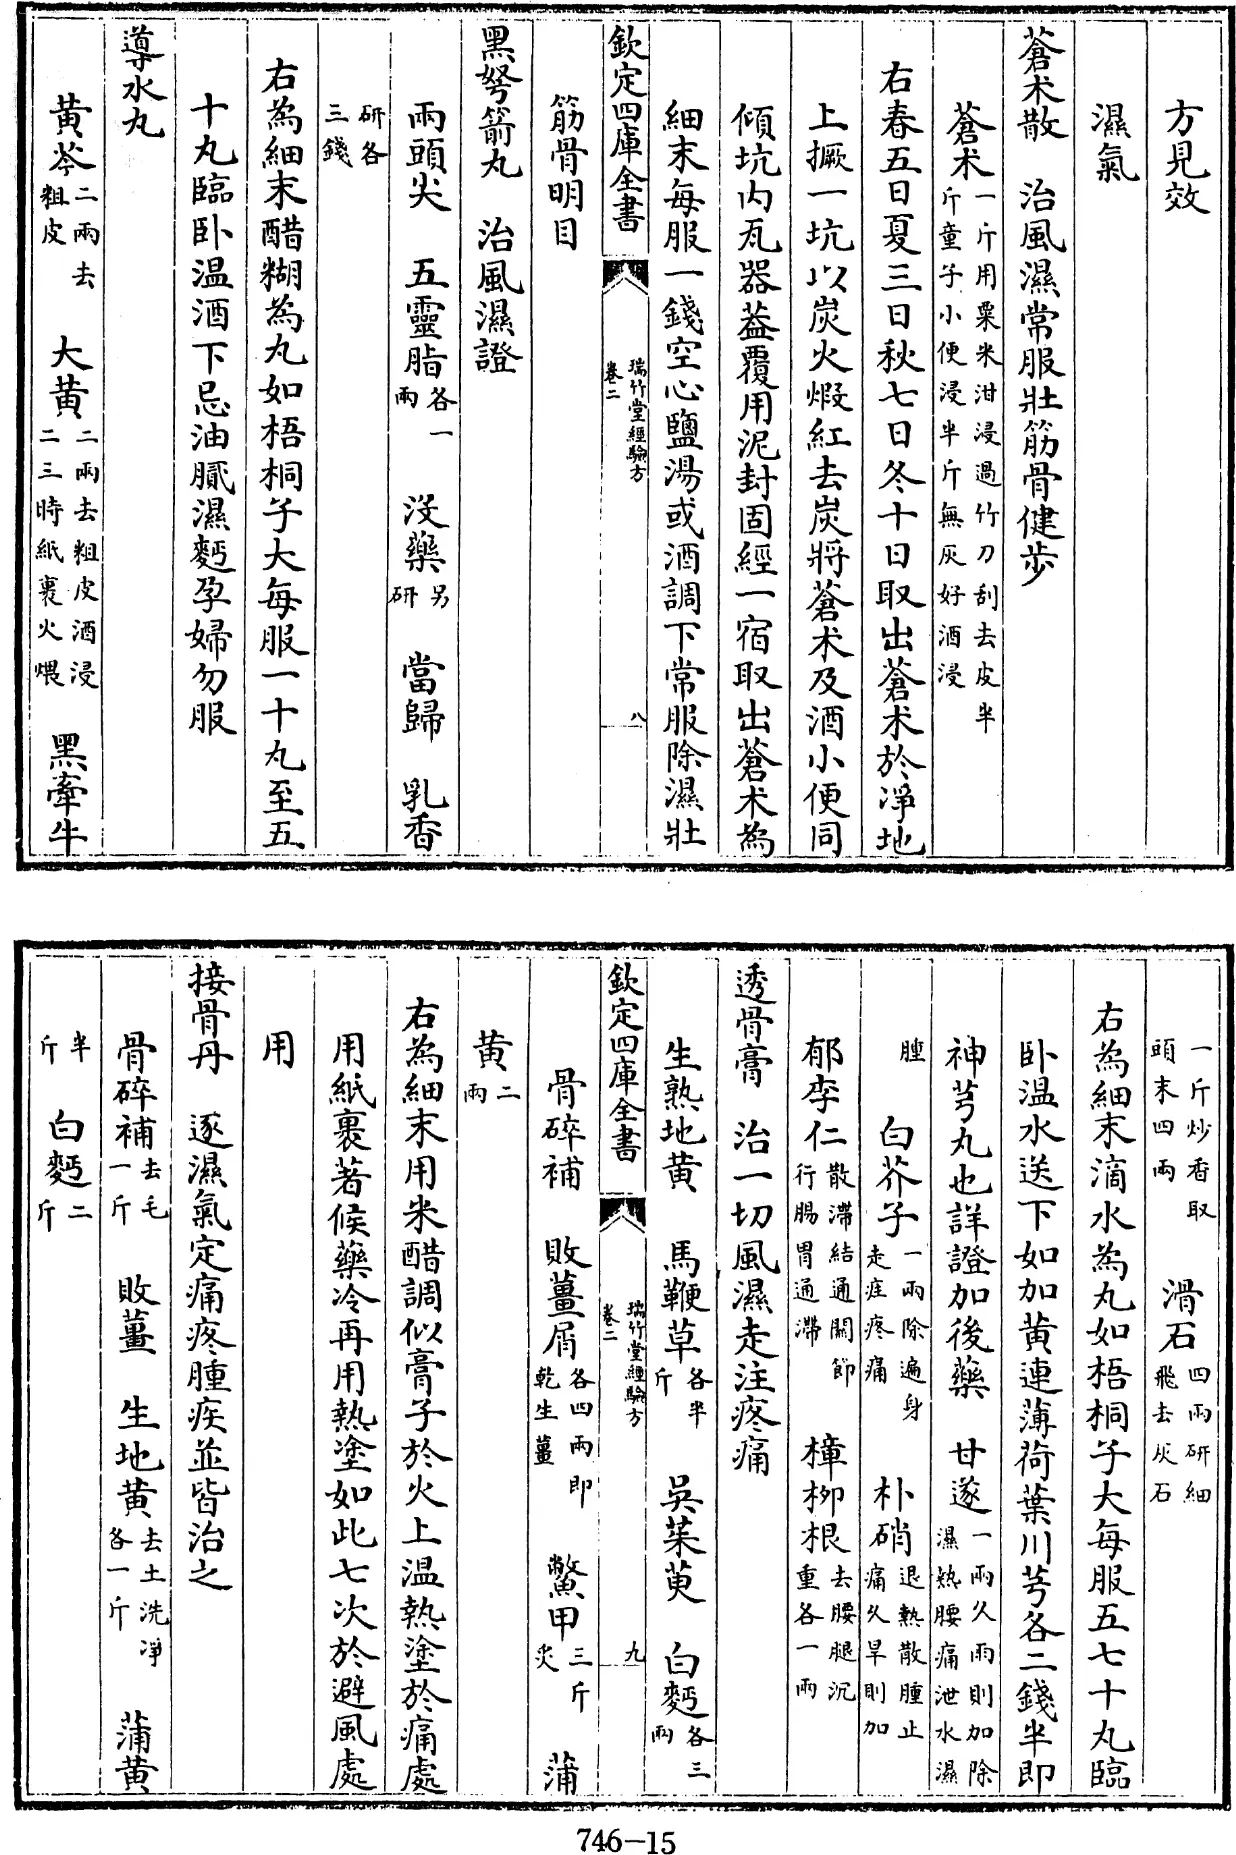 方見效
濕氣
蒼术散　治風濕常服壯筋骨健步
蒼术一斤用粟米泔浸過竹刀刮去皮半斤童子小便浸半斤無灰好酒浸
右春五日夏三日秋七日冬十日取出蒼术於淨地
上撅一坑以炭火煆紅去炭將蒼术及酒小便同
傾坑内瓦器葢覆用泥封固經一宿取出蒼术為
細末每服一錢空心鹽湯或酒調下常服除濕壯
欽定四庫全書　瑞竹堂經驗方卷二　八
筋骨明目
黑弩箭丸　治風濕證
兩頭尖　五靈脂各一兩　没藥另研　當歸　乳香
研各三錢
右為細末醋糊為丸如梧桐子大每服一十丸至五
十丸臨卧温酒下忌油膩濕麪孕婦勿服
導水丸
黄芩二兩去粗皮　大黄二兩去粗皮酒浸二三時紙裹火煨　黑牽牛
一斤炒香取頭末四兩　滑石四兩研細飛去灰石
右為細末滴水為丸如梧桐子大每服五七十丸臨
卧温水送下如加黄連薄荷葉川芎各二錢半即
神芎丸也詳證加後藥　甘遂一兩久雨則加除濕熱腰痛泄水濕
腫　白芥子一兩除遍身走疰疼痛　朴硝退熱散腫止痛久旱則加
郁李仁散滯結通關節行腸胃通滯　樟栁根去腰腿沉重各一兩
透骨膏　治一切風濕走注疼痛
生熟地黄　馬鞭草各半斤　吳茱萸　白麪各三兩
欽定四庫全書　瑞竹堂經驗方卷二　九
骨碎補　敗薑屑各四兩即乾生薑　鱉甲三斤炙　蒲
黄二兩
右為細末用米醋調似膏子於火上温熱塗於痛處
用紙裹著候藥冷再用熱塗如此七次於避風處
用
接骨丹　逐濕氣定痛疼腫疾並皆治之
骨碎補去毛一斤　敗薑　生地黄去土洗淨各一斤　蒲黄
半斤　白麪二斤
746-15